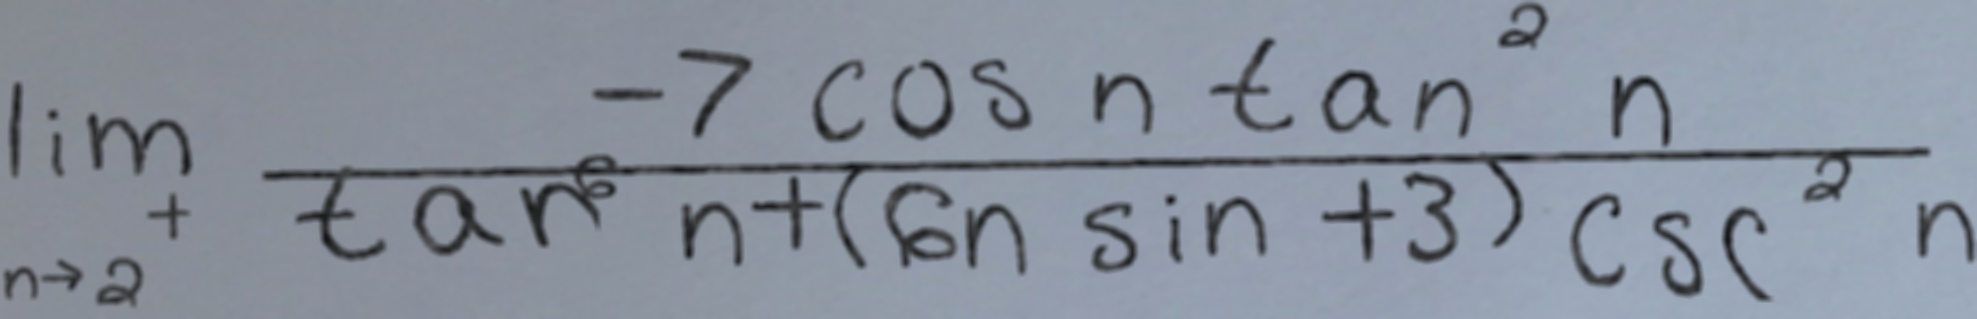 lim n→2⁺ (-7 cos n tan² n) / (tan⁶ n+(6n sin +3) csc² n)